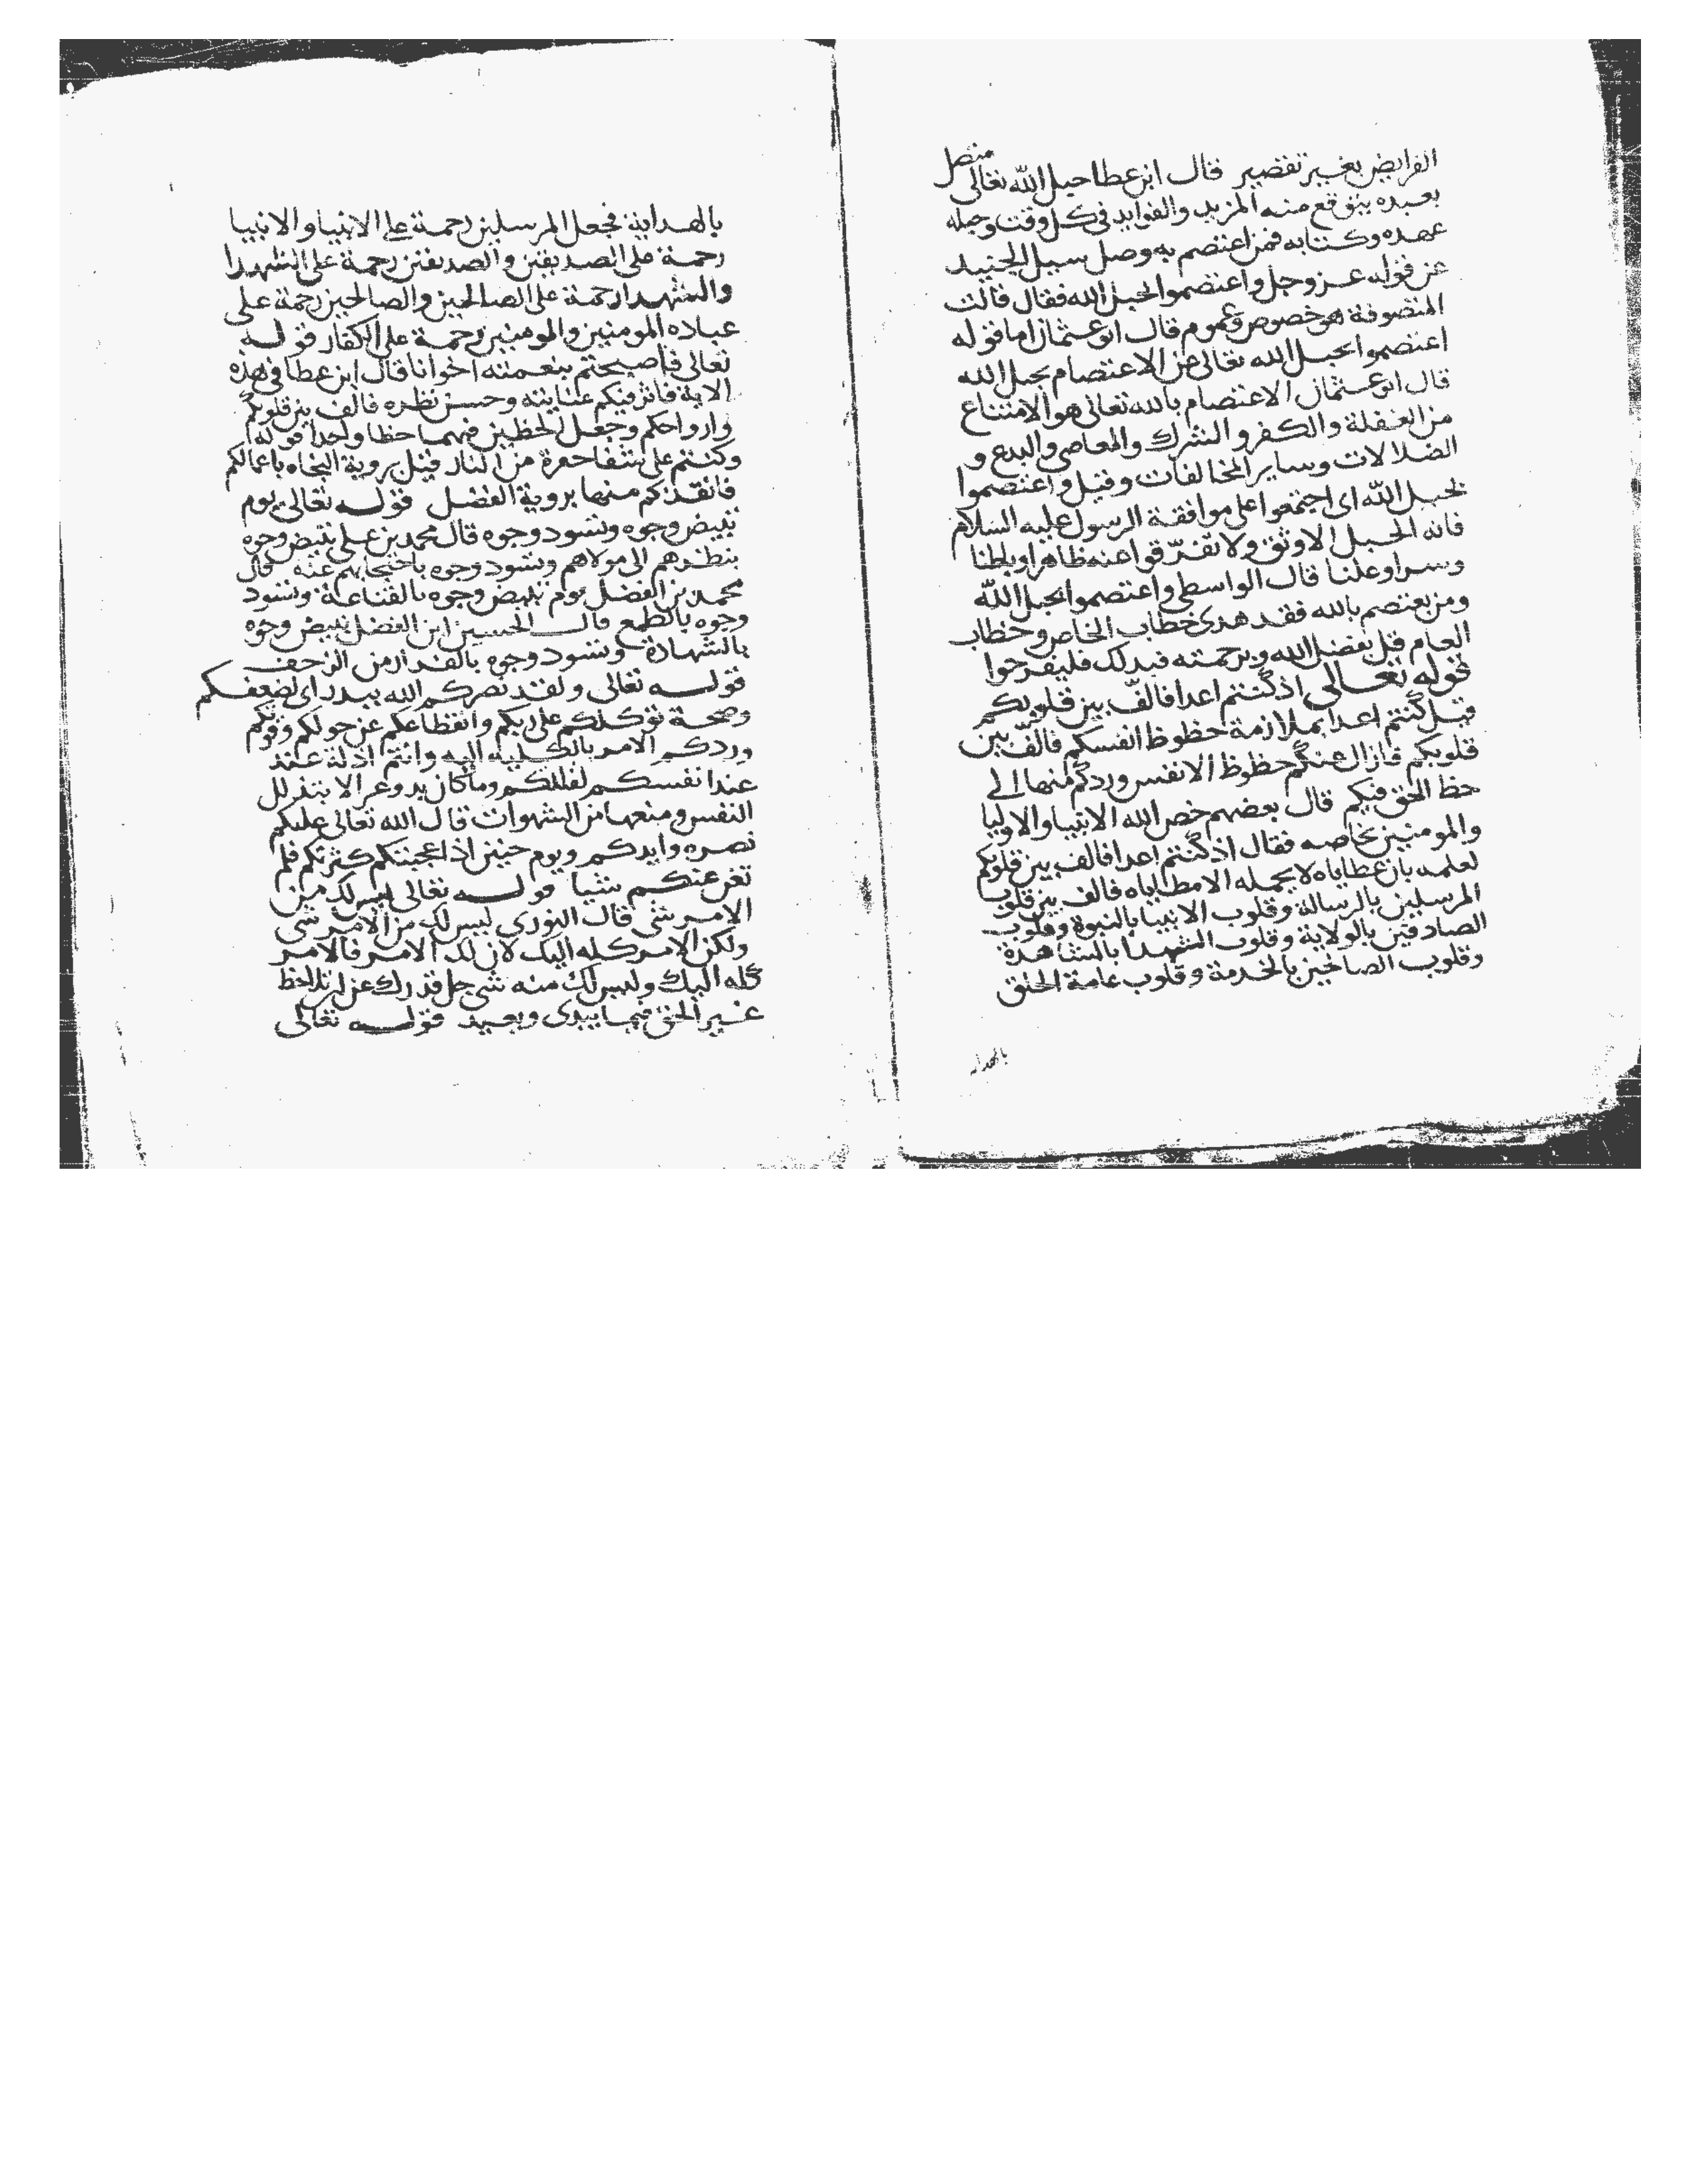 الفرايض بغير تقصير قال ابن عطا حبل الله تعالى متصل
بعبده يتوقع منه المزيد والفوايد في كل وقت وحبله
عهده وكتابه فمن اعتصم به وصل سيل الجنيد
عن قوله عز وجل واعتصموا بحبل الله فقال قالت
المتصوفة هو خصوص وعموم قال ابو عثمان اما قوله
اعتصموا بحبل الله تعالى عن الاعتصام بحبل الله
قال ابو عثمان الاعتصام بالله تعالى هو الامتناع
من الغفلة والكفر والشرك والمعاصي والبدع و
الضلالات وساير المخالفات وقيل واعتصموا
بحبل الله اى اجتمعوا على موافقة الرسول عليه السلام
فانه الحبل الاوثق ولا تفرّقوا عنه ظاهرا وباطنا
وسرا وعلنا قال الواسطي واعتصموا بحبل الله
ومن يعتصم بالله فقد هدى خطاب الخاص وخطاب
العام قل بفضل الله وبرحمته فبذلك فليفرحوا
قوله تعالى اذ كنتم اعدا فالّف بين قلوبكم
قيل كنتم اعدا بملازمة حظوظ انفسكم فالّف بين
قلوبكم فازال عنكم حظوظ الانفس وردكم منها الى
حظ الحق فيكم قال بعضهم خص الله الانبيا والاوليا
والمومنين بخاصه فقال اذ كنتم اعدا فالف بين قلوبكم
لعلمه بان عطاياه لا يحمله الا مطاياه فالف بين قلوب
المرسلين بالرسالة وقلوب الانبيا بالنبوة وقلوب
الصادقين بالولاية وقلوب الشهدا بالمشاهدة
وقلوب الصالحين بالخدمة وقلوب عامة الخلق
بالهداية
بالهداية فجعل المرسلين رحمة على الانبيا والانبيا
رحمة على الصديقين والصديقين رحمة على الشهدا
والشهدا رحمة على الصالحين والصالحين رحمة على
عباده المومنين والمومنين رحمة على الكفار قوله
تعالى فاصبحتم بنعمته اخوانا قال ابن عطا في هذه
الاية فاثر فيكم عنايته وحسن نظره فالف بين قلوبكم
وارواحكم وجعل الحظين فيهما حظا واحدا قوله
وكنتم على شفا حفرة من النار قيل بروية النجاه باعمالكم
فانقذكم منها بروية الفضل قوله تعالى يوم
تبيض وجوه وتسود وجوه قال محمد بن علي تبيض وجوه
بنظرهم الى مولاهم وتسود وجوه باحتجابهم عنه قال
محمد بن الفضل يوم تبيض وجوه بالقناعة وتسود
وجوه بالطمع قال الحسين ابن الفضل تبيض وجوه
بالشهادة وتسود وجوه بالفرار من الزحف
قوله تعالى ولقد نصركم الله ببدر اى لضعفكم
وصحة توكلكم على ربكم وانقطاعكم عن حولكم وقوتكم
وردكم الامر بالكليه اليه وانتم اذلة عند
عند انفسكم لقلتكم وما كان بد وعر الا بتذلل
النفس ومنعها من الشهوات قال الله تعالى عليكم
نصره وايدكم ويوم حنين اذ اعجبتكم كثرتكم فلم
تغن عنكم شيا قوله تعالى ليس لك من
الامر شى قال النوري ليس لك من الامر شى
ولكن الامر كله اليك لان لك الامر فالامر
كله اليك وليس لك منه شى جل قدرك عن ان تلاحظ
غير الحق فيما يبدى ويعيد قوله تعالى